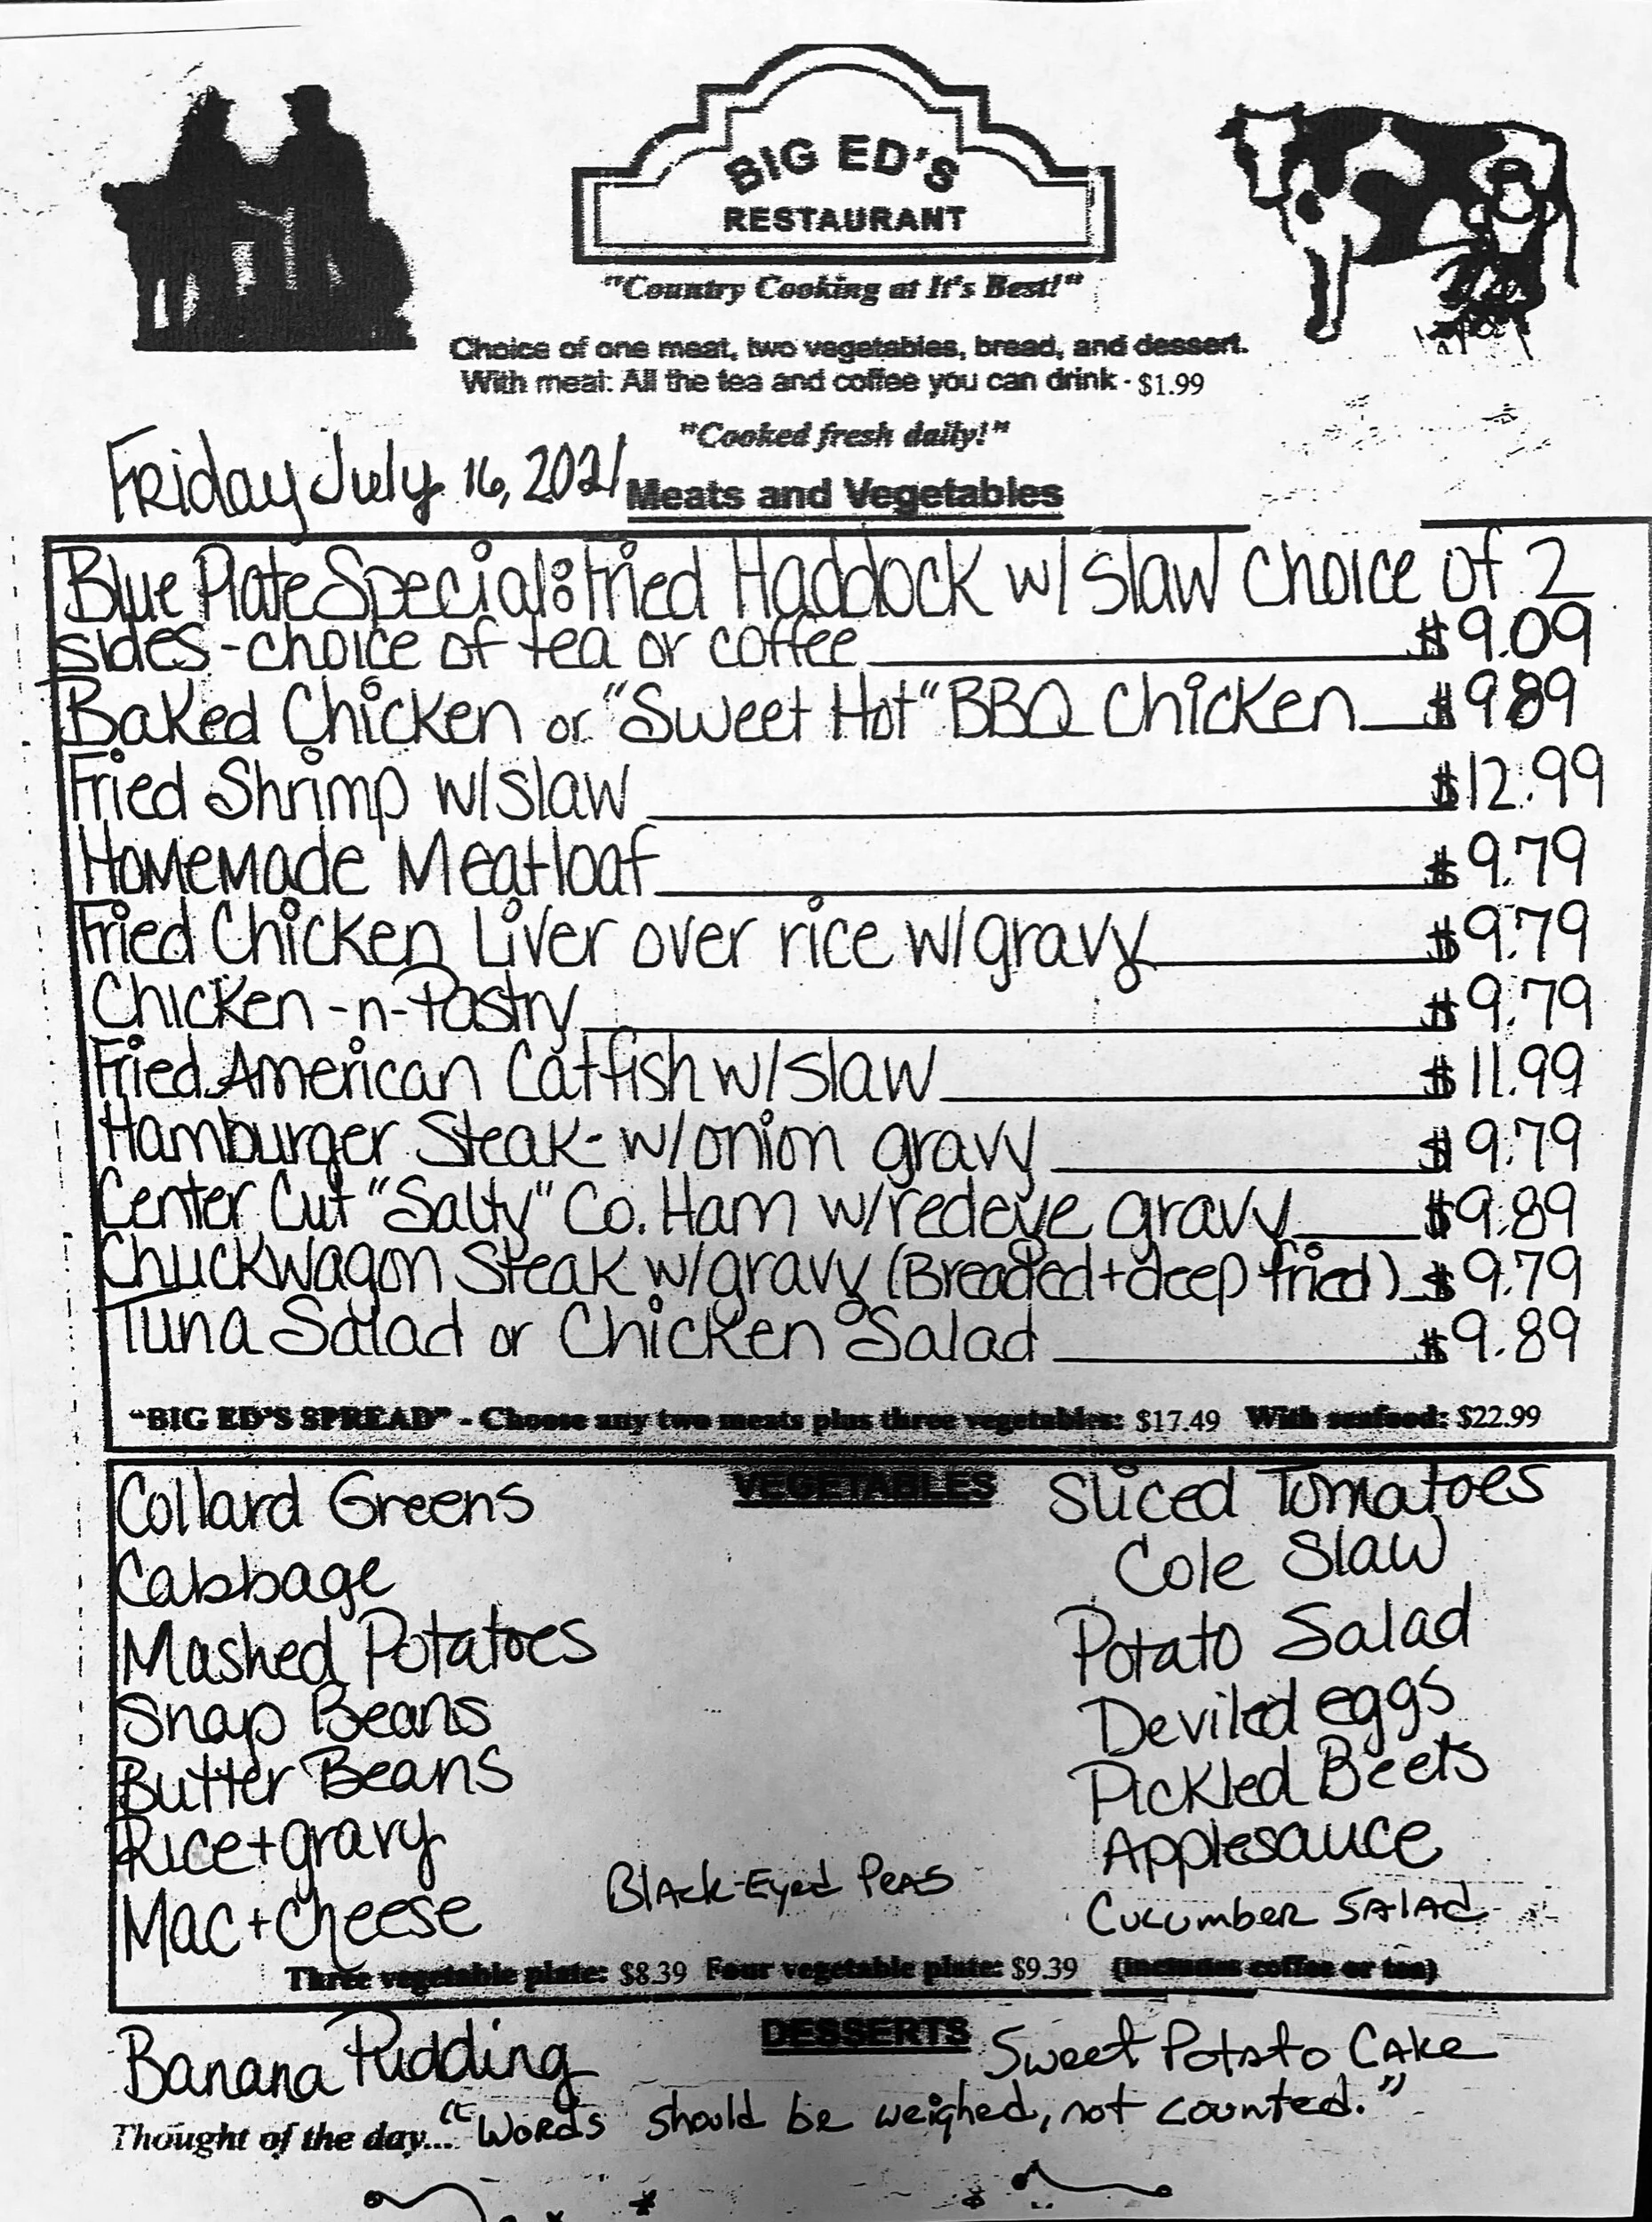 BIG ED'S
RESTAURANT
"Country Cooking at It's Best!"
Choice of one meat, two vegetables, bread, and dessert.
With meal: All the tea and coffee you can drink - $1.99
"Cooked fresh daily!"
Friday July 16, 2021
Meats and Vegetables
Blue Plate Special: Fried Haddock w/slaw choice of 2
sides - choice of tea or coffee $9.09
Baked Chicken or "Sweet Hot" BBQ Chicken $9.89
Fried Shrimp w/slaw $12.99
Homemade Meatloaf $9.79
Fried Chicken Liver over rice w/gravy $9.79
Chicken-n-Pastry $9.79
Fried American Catfish w/slaw $11.99
Hamburger Steak- w/onion gravy $9.79
Center Cut "Salty" Co. Ham w/redeye gravy $9.89
Chuckwagon Steak w/gravy (Breaded+deep fried) $9.79
Tuna Salad or Chicken Salad $9.89
"BIG ED'S SPREAD" - Choose any two meats plus three vegetables: $17.49 With seafood: $22.99
VEGETABLES
Collard Greens
Cabbage
Mashed Potatoes
Snap Beans
Butter Beans
Rice+gravy
Mac+Cheese
Black-Eyed Peas
Sliced Tomatoes
Cole Slaw
Potato Salad
Deviled eggs
Pickled Beets
Applesauce
Cucumber Salad
Three vegetable plate: $8.39 Four vegetable plate: $9.39 (includes coffee or tea)
DESSERTS
Banana Pudding
Sweet Potato Cake
Thought of the day... "Words should be weighed, not counted."